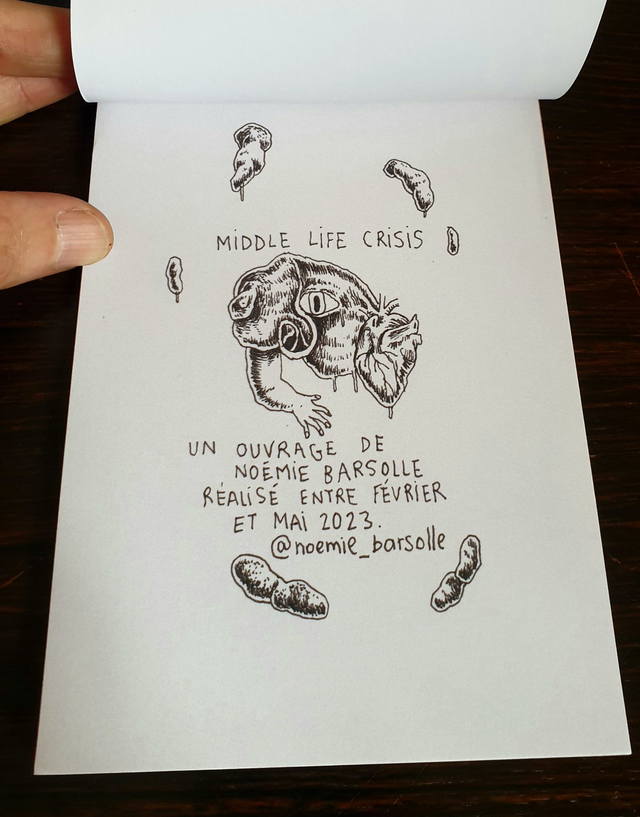 MIDDLE LIFE CRISIS
UN OUVRAGE DE
NOÉMIE BARSOLLE
RÉALISÉ ENTRE FÉVRIER
ET MAI 2023.
@noemie_barsolle